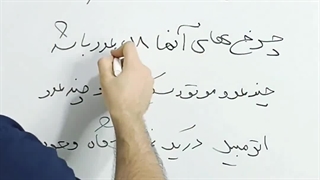 چرخ های آنها عدد باشد
چند عدد و چند عدد
اتومبیل در یک وجود